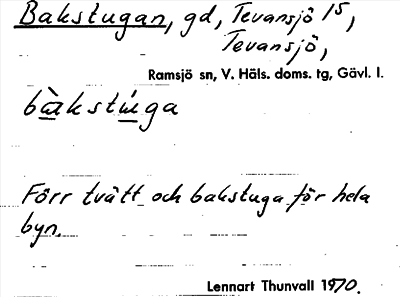 Bakstugan, gd, Tevansjö 1⁵,
Tevansjö,
Ramsjö sn, V. Häls. doms. tg, Gävl. l.
bàkstúga
Förr tvätt och bakstuga för hela
byn.
Lennart Thunvall 1970.